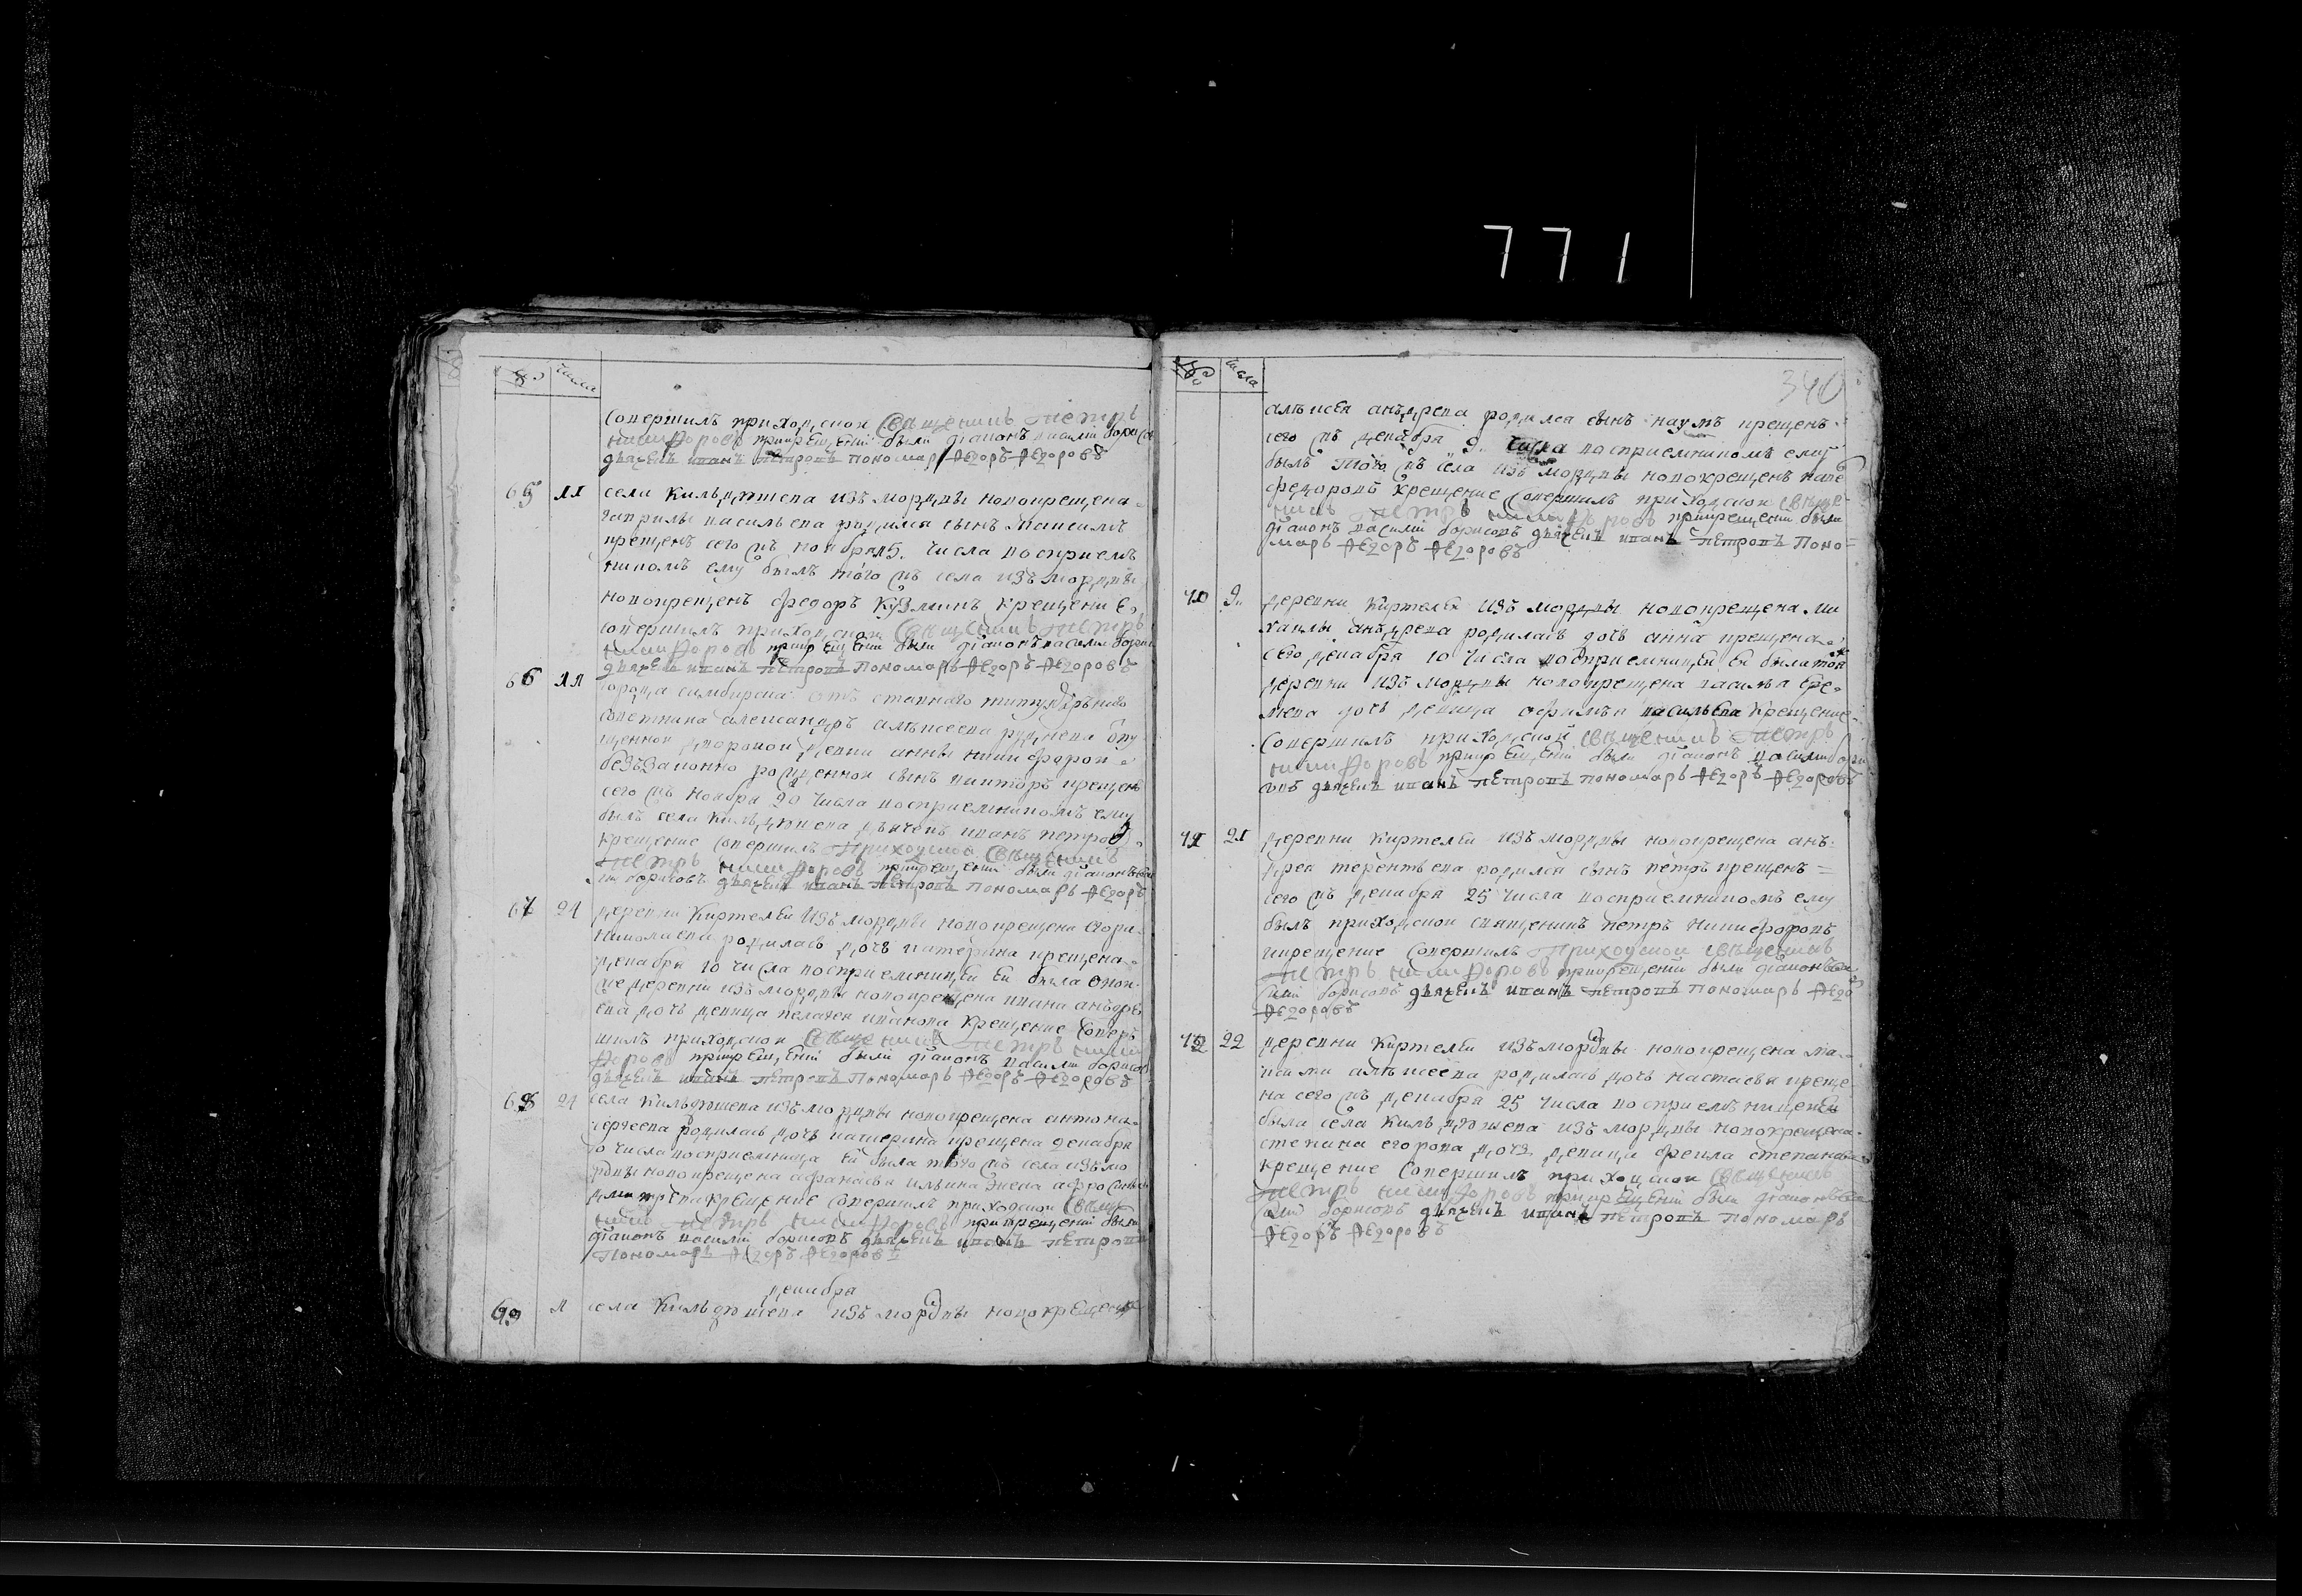 771
340
№ числа
совершилъ приходской священникъ петръ
никифоровъ при крещении были диаконъ василий борисо
дьячекъ иванъ петровъ пономарь федоръ федоровъ
65 11 села кильдюшева изъ мордвы новокрещена
гаврилы васильева родился сынъ максимъ
крещенъ сего мъ ноября 15 числа восприем
никомъ ему былъ того мъ села изъ мордвы
новокрещенъ федоръ кузминъ крещение
совершилъ приходской священникъ петръ
никифоровъ при крещении были диаконъ василий бори
дьячекъ иванъ петровъ пономарь федоръ федоровъ
66 11 города симбирска отъ статнаго титулярнаго
советника александръ алѣксеева руднева опу
щенной дворовой девки анны никифорово
беззаконно рожденной сынъ викторъ крещенъ
сего мъ ноября 20 числа восприемникомъ ему
былъ села кильдюшева дьячекъ иванъ петровъ
крещение совершилъ приходской священникъ
петръ никифоровъ при крещении были диаконъ ва
борисовъ дьячекъ иванъ петровъ пономарь федоръ
67 21 деревни киртелей изъ мордвы новокрещена
николаева родилась дочь катерина крещена
декабря 10 числа восприемницей ей была оной
же деревни изъ мордвы новокрещена ивана андре
ева дочь девица пелагея иванова крещение совер
шилъ приходской священникъ петръ ники
форовъ при крещении были диаконъ василий борисов
дьячекъ иванъ петровъ пономарь федоръ федоровъ
68 21 села кильдюшева изъ мордвы новокрещена антона
сергеева родилась дочь катерина крещена декабря
10 числа восприемница ей была того мъ села изъ мо
рдвы новокрещена афанасья ильина жена афросинья
дмитрева крещение совершилъ приходской свеще
никъ петръ никифоровъ при крещении были
диаконъ василий борисовъ дьячекъ иванъ петровъ
пономарь федоръ федоровъ
декабря
69 1 села кильдюшева изъ мордвы новокрещена
№ числа
алѣксея андреева родился сынъ наумъ крещенъ
сего мъ декабря 9 числа восприемникомъ ему
былъ того мъ села изъ мордвы новокрещенъ
федоровъ крещение совершилъ приходской свеще
никъ петръ никифоровъ при крещении были
диаконъ василий борисовъ дьячекъ иванъ петровъ поно
марь федоръ федоровъ
70 9 деревни киртелей изъ мордвы новокрещена ми
хаилы андреева родилась дочь анна крещена
сего декабря 10 числа восприемницей ей были той
деревни изъ мордвы новокрещена василья ере
меева дочь девица офимья васильева крещение
совершилъ приходской священникъ петръ
никифоровъ при крещении были диаконъ василий бори
совъ дьячекъ иванъ петровъ пономарь федоръ федоровъ
71 21 деревни киртелей изъ мордвы новокрещена ан
дрея терентьева родился сынъ петръ крещенъ
сего мъ декабря 25 числа восприемникомъ ему
былъ приходской священникъ петръ никифоровъ
крещение совершилъ приходской священникъ
петръ никифоровъ при крещении были диаконъ ва
силий борисовъ дьячекъ иванъ петровъ пономарь федо
федоровъ
72 22 деревни киртелей изъ мордвы новокрещена ма
алѣксеева родилась дочь настасья креще
на сего мъ декабря 25 числа восприемницей ей
была села кильдюшева изъ мордвы новокрещена
степана егорова дочь девица фекла степанова
крещение совершилъ приходской священникъ
петръ никифоровъ при крещении были диаконъ ва
силий борисовъ дьячекъ иванъ петровъ пономарь
федоръ федоровъ